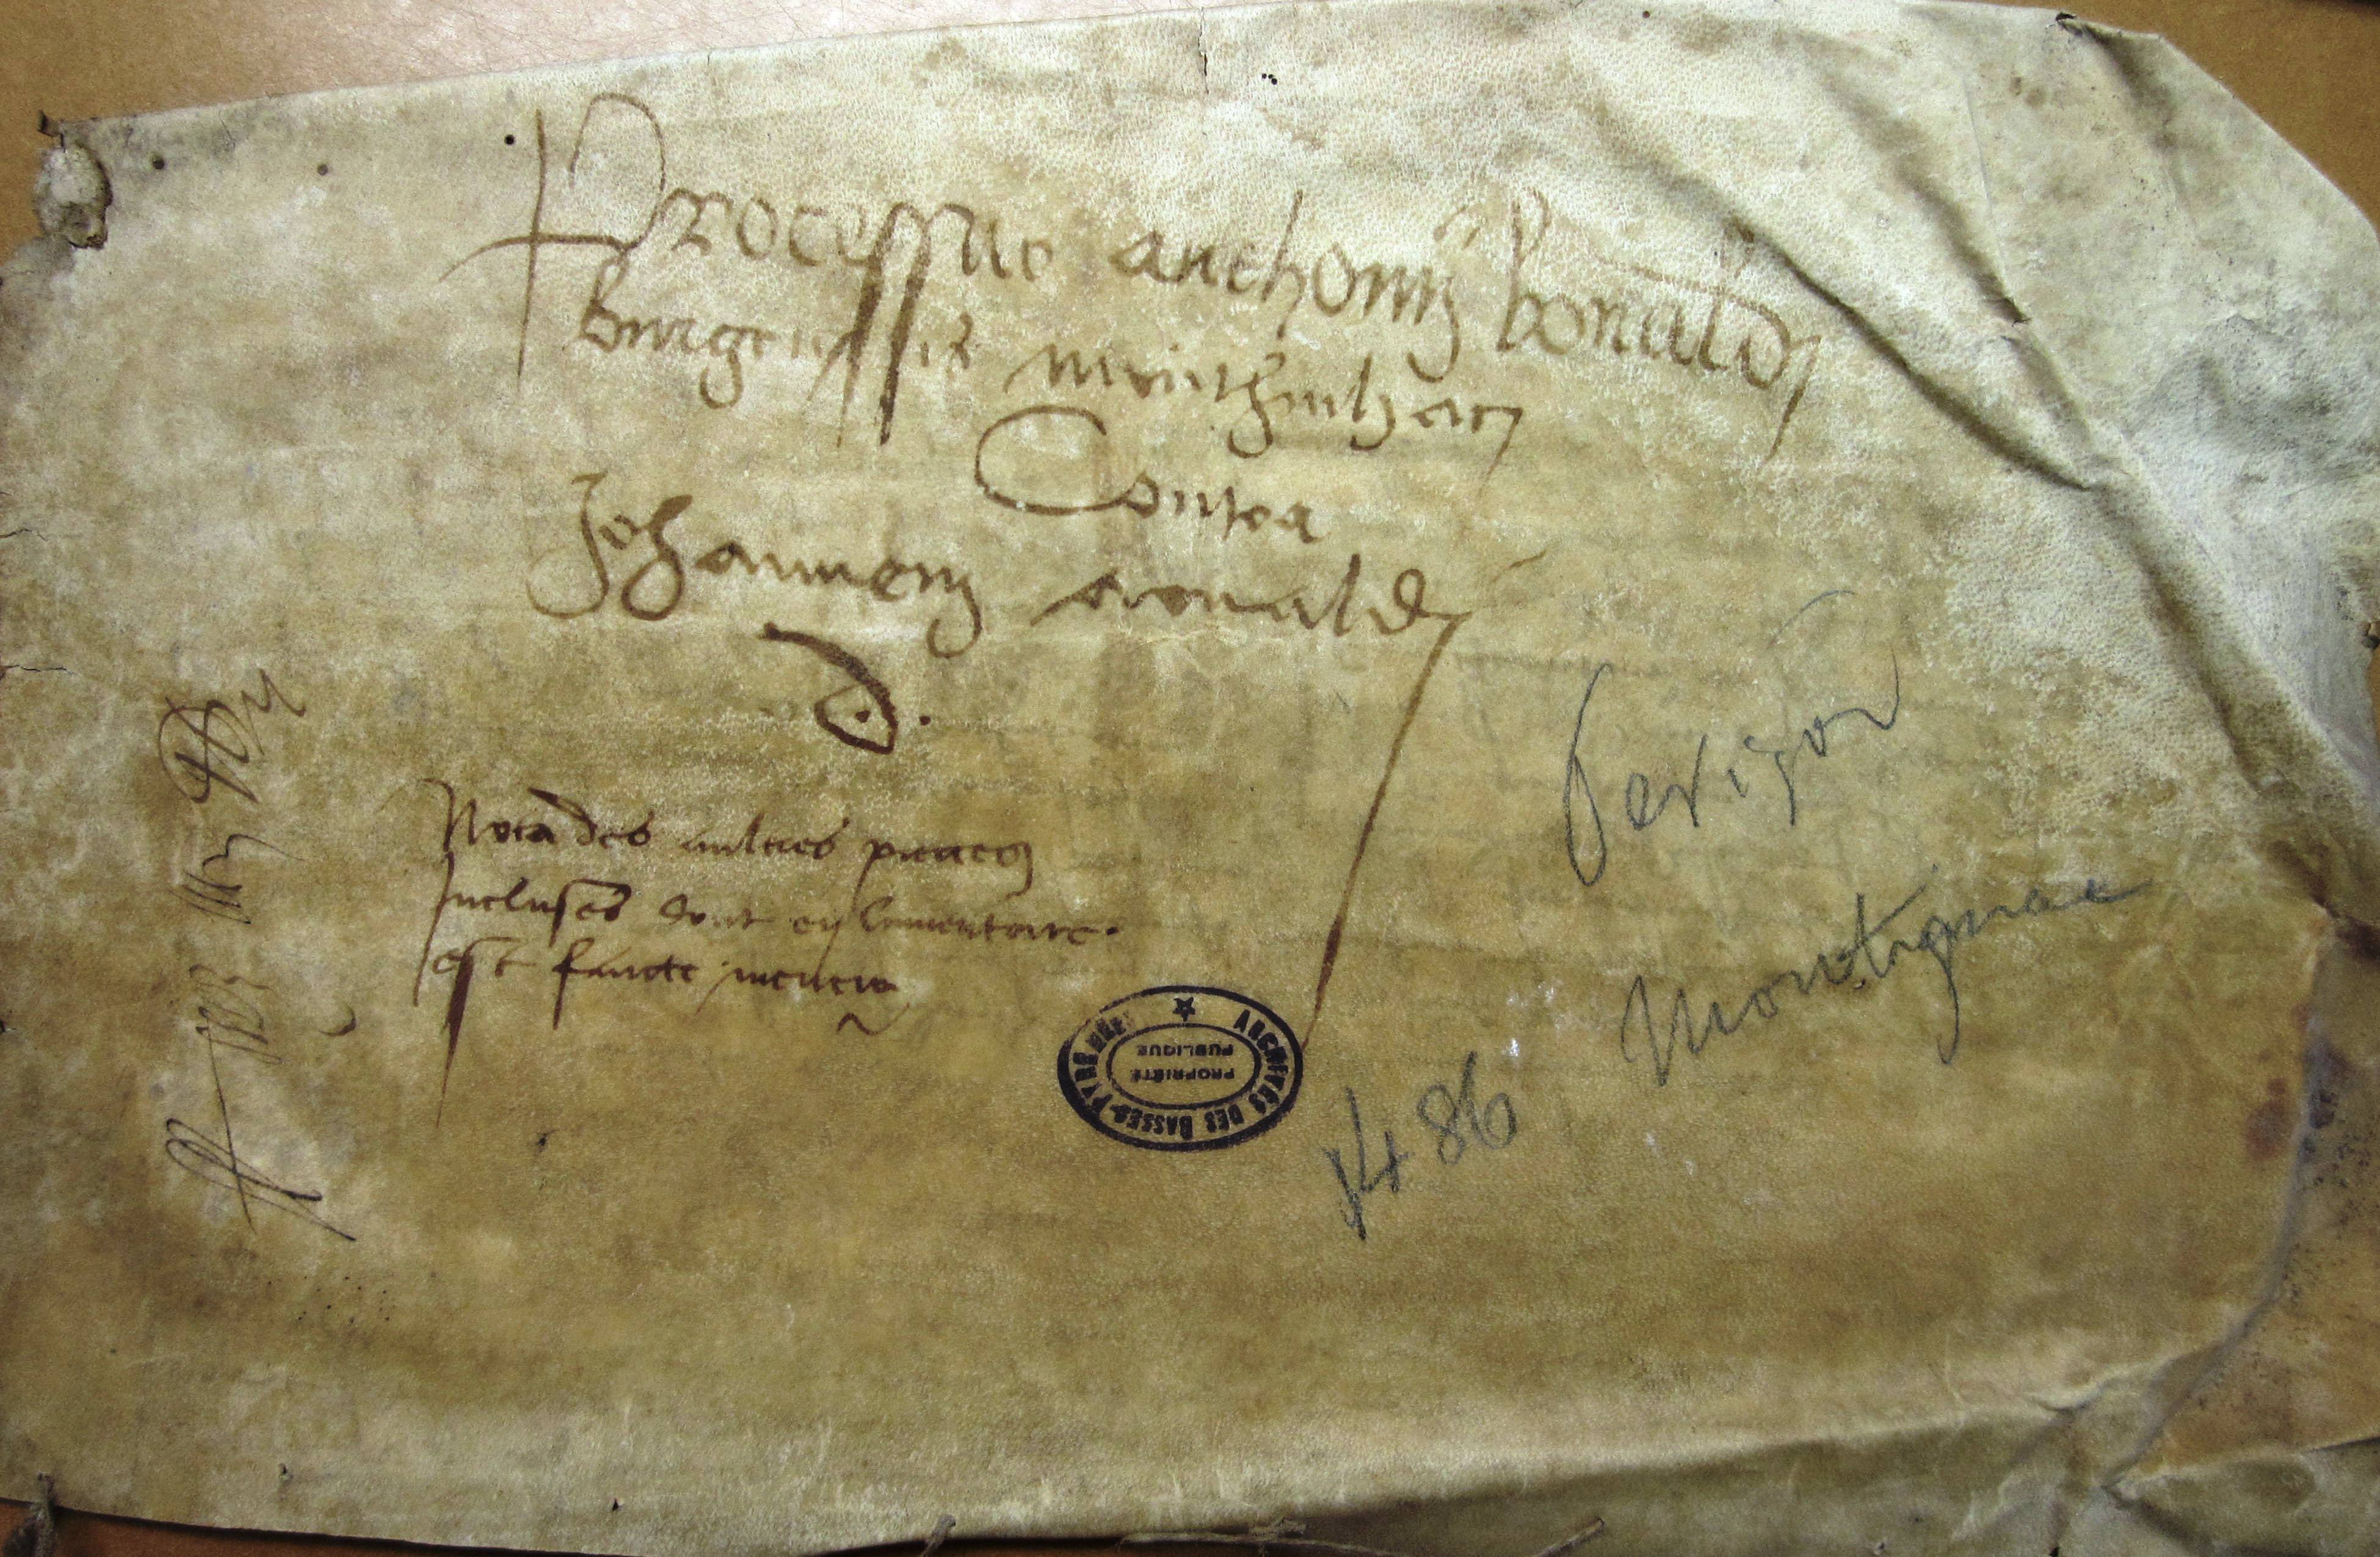 Processus anthonii bonaldi
burgenssis
Contra
Johannem aronaldi
d.
Nota des aultres pieces
Incluses dont en linventoire
est faicte mencion
Perigord
Montignac
1486
ARCHIVES DES BASSES-PYRÉNÉES
PROPRIÉTÉ
PUBLIQUE